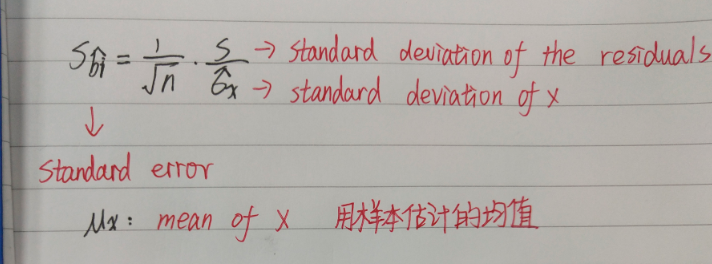 S_{\hat{b1}} = \frac{1}{\sqrt{n}} \cdot \frac{S}{\hat{σ}_x} → standard deviation of the residuals
→ standard deviation of x
↓
Standard error
μx: mean of x 用样本估计的均值